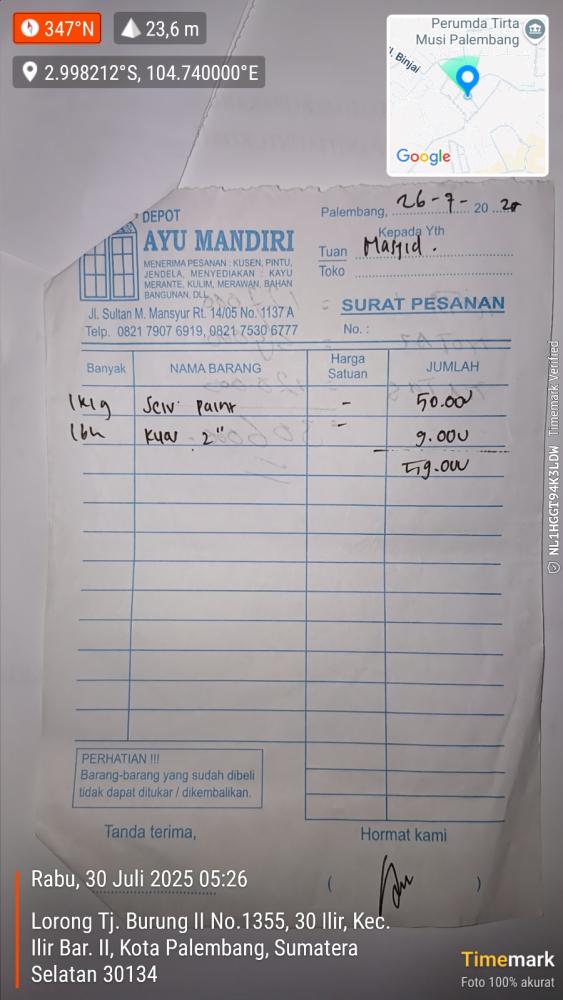 347°N
23,6 m
2.998212°S, 104.740000°E
Perumda Tirta
Musi Palembang
Binjai
Google
DEPOT
AYU MANDIRI
MENERIMA PESANAN : KUSEN, PINTU,
JENDELA, MENYEDIAKAN : KAYU
MERANTE, KULIM, MERAWAN, BAHAN
BANGUNAN, DLL.
Jl. Sultan M. Mansyur Rt. 14/05 No. 1137 A
Telp. 0821 7907 6919, 0821 7530 6777
Palembang, 26-7- 20
Kepada Yth
Tuan Masjid.
Toko
SURAT PESANAN
No. :
Banyak NAMA BARANG Harga Satuan JUMLAH
1 kg paint - 50.000
2" - 9.000
59.000
PERHATIAN !!!
Barang-barang yang sudah dibeli
tidak dapat ditukar / dikembalikan.
Tanda terima,
Hormat kami
( )
Rabu, 30 Juli 2025 05:26
Lorong Tj. Burung II No.1355, 30 Ilir, Kec.
Ilir Bar. II, Kota Palembang, Sumatera
Selatan 30134
Timemark
Foto 100% akurat
NL1HGGT94K3LDW Timemark Verified